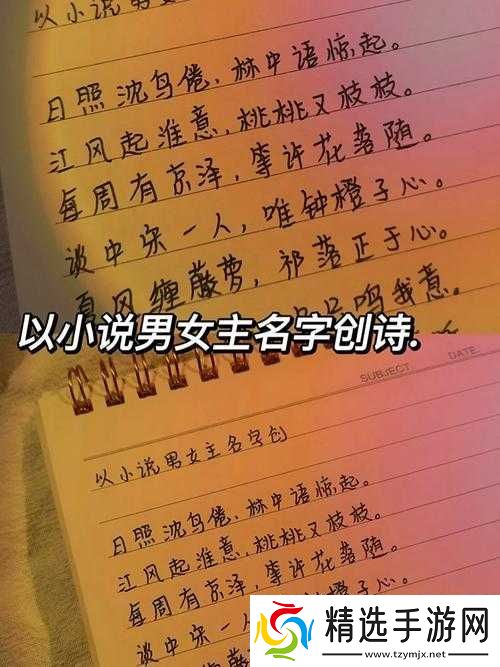 以小说男
日照沈鸟倦，林中语惊起。
江风起淮意，桃桃又枝枝。
每周有京泽，等许花落随。
谈中宋一人，唯钟橙子心。
夏风缠萝，祁落正于心。
鸣我意。
以小说男女主名字创诗.
SUBJECT DATE
以小说男女主名字创
日照沈鸟倦，林中语惊起。
江风起淮意，桃桃又枝枝。
每周有京泽，等许花落随。
谈中宋一人 橙子心。
精选手游网
www.tzymjx.net